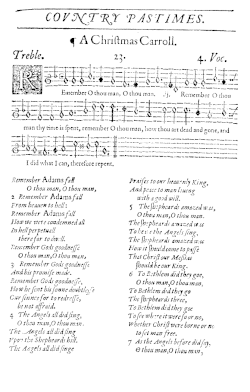 COVNTRY PASTIMES.
¶ A Chriſtmas Carroll.
Treble. 23. 4. Voc.
REmember O thou man, O thou man, .ij. Remember O thou
man thy time is ſpent, remember O thou man, how thou art dead and gone, and
I did what I can, therefore repent.
Remember Adams fall
O thou man, O thou man,
2 Remember Adams fall
From heauen to hell:
Remember Adams fall
How we were condemned all
In hell perpetuall
there for to dwell.
Remember Gods goodneſſe
O thou man, O thou man,
3 Remember Gods goodneſſe
And his promiſe made.
Remember Gods goodneſſe,
How he ſent his ſonne doubtleſſe
Our ſinnes for to redreſſe,
be not affraid.
4 The Angels all did ſing,
O thou man, O thou man,
The Angels all did ſing
Vpon the Shepherds hill.
The Angels all did ſinge
Praiſes to our heauenly King,
And peace to man liuing
with a good will.
5 The ſhepheards amazed was,
O thou man, O thou man,
The ſhepheards amazed was
To heare the Angels ſing,
The ſhepheards amazed was
How it ſhould come to paſſe
That Chriſt our Meſſias
ſhould be our King.
6 To Bethlem did they goe,
O thou man, O thou man,
To Bethlem did they go
The ſhepheards three,
To Bethlem did they goe
To ſee where it were ſo or no,
Whether Chriſt were borne or no
to ſet man free.
7 As the Angels before did ſay,
O thou man, O thou man,